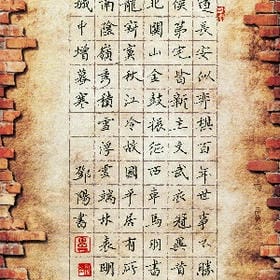 道長安似弈棋百年世事不勝
侯第宅皆新主文武衣冠異昔
北關山金鼓振征西車馬羽書
龍寂寞秋江冷故國平居有所
南陰嶺秀積雪浮雲端林表明
城中增暮寒 鄧陽書